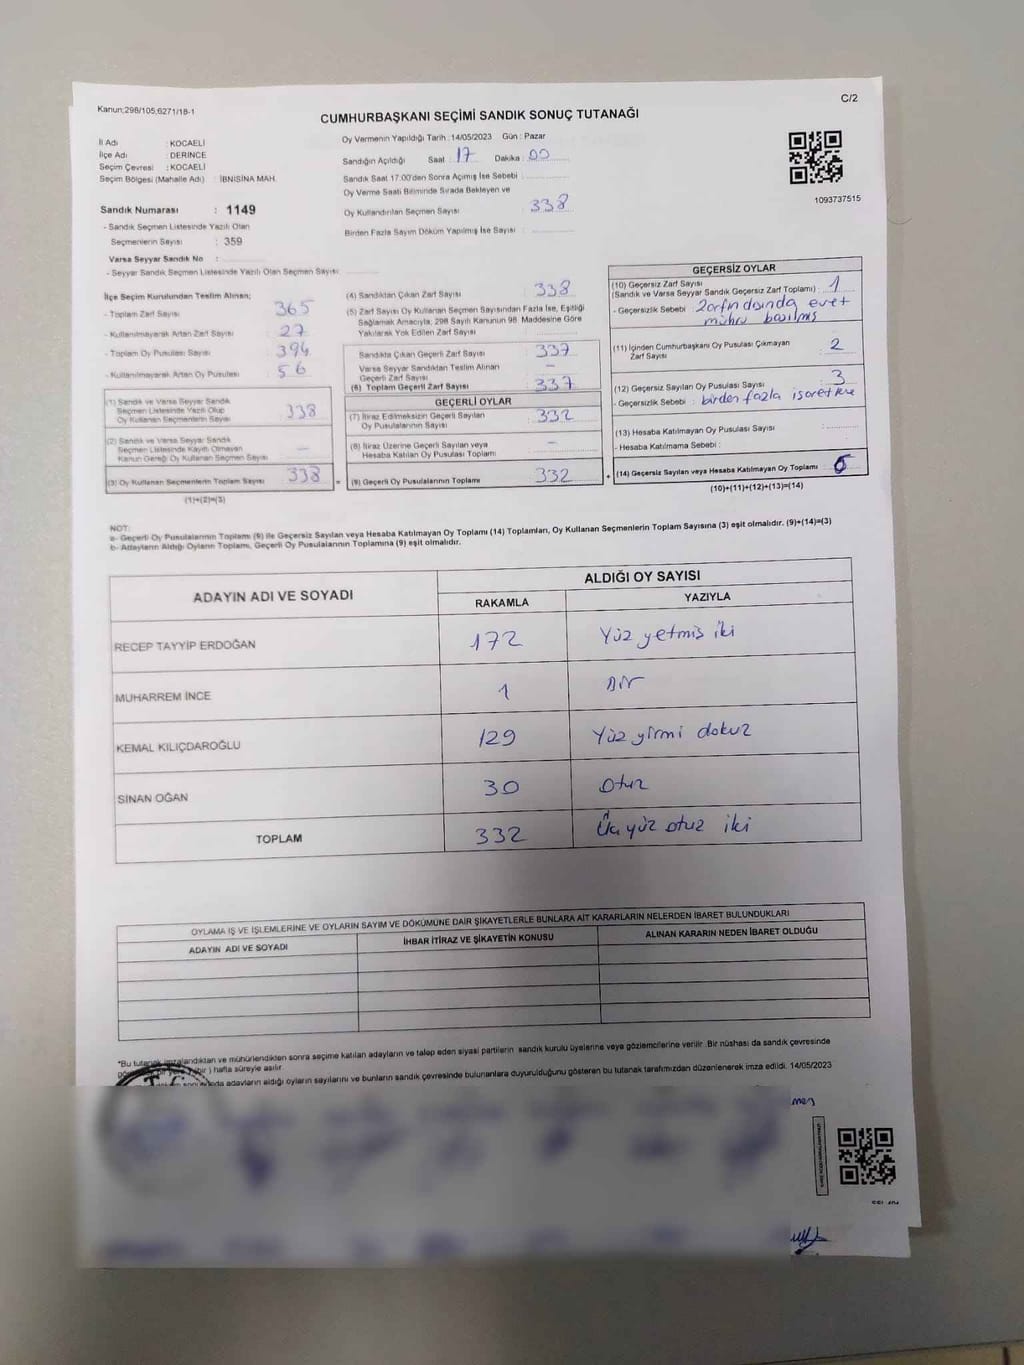 Kanun;298/105;6271/18-1
C/2
CUMHURBAŞKANI SEÇİMİ SANDIK SONUÇ TUTANAĞI
İl Adı : KOCAELİ
İlçe Adı : DERİNCE
Seçim Çevresi : KOCAELİ
Seçim Bölgesi (Mahalle Adı) : İBNİSİNA MAH.
Sandık Numarası : 1149
- Sandık Seçmen Listesinde Yazılı Olan
Seçmenlerin Sayısı : 359
Varsa Seyyar Sandık No :
- Seyyar Sandık Seçmen Listesinde Yazılı Olan Seçmen Sayısı
Oy Vermenin Yapıldığı Tarih : 14/05/2023 Gün : Pazar
Sandığın Açıldığı Saat 17 Dakika : 00
Sandık Saat 17.00'den Sonra Açılmış İse Sebebi :
Oy Verme Saati Bitiminde Sırada Bekleyen ve
Oy Kullandırılan Seçmen Sayısı : 338
Birden Fazla Sayım Döküm Yapılmış İse Sayısı :
1093737515
İlçe Seçim Kurulundan Teslim Alınan;
- Toplam Zarf Sayısı : 365
- Kullanılmayarak Artan Zarf Sayısı : 27
- Toplam Oy Pusulası Sayısı : 394
- Kullanılmayarak Artan Oy Pusulası : 56
(1) Sandık ve Varsa Seyyar Sandık
Seçmen Listesinde Yazılı Olup
Oy Kullanan Seçmenlerin Sayısı : 338
(2) Sandık ve Varsa Seyyar Sandık
Seçmen Listesinde Kayıtlı Olmayan
Kanun Gereği Oy Kullanan Seçmen Sayısı : –
(3) Oy Kullanan Seçmenlerin Toplam Sayısı : 338
(1)+(2)=(3)
(4) Sandıktan Çıkan Zarf Sayısı : 338
(5) Zarf Sayısı Oy Kullanan Seçmen Sayısından Fazla İse, Eşitliği
Sağlamak Amacıyla; 298 Sayılı Kanunun 98. Maddesine Göre
Yakılarak Yok Edilen Zarf Sayısı
Sandıkta Çıkan Geçerli Zarf Sayısı : 337
Varsa Seyyar Sandıktan Teslim Alınan
Geçerli Zarf Sayısı : –
(6) Toplam Geçerli Zarf Sayısı : 337
GEÇERLİ OYLAR
(7) İtiraz Edilmeksizin Geçerli Sayılan
Oy Pusulalarının Sayısı : 332
(8) İtiraz Üzerine Geçerli Sayılan veya
Hesaba Katılan Oy Pusulası Toplamı : –
= (9) Geçerli Oy Pusulalarının Toplamı : 332
GEÇERSİZ OYLAR
(10) Geçersiz Zarf Sayısı
(Sandık ve Varsa Seyyar Sandık Geçersiz Zarf Toplamı) : 1
- Geçersizlik Sebebi : Zarfın dışında evet
mührü basılmış
(11) İçinden Cumhurbaşkanı Oy Pusulası Çıkmayan
Zarf Sayısı : 2
(12) Geçersiz Sayılan Oy Pusulası Sayısı : 3
- Geçersizlik Sebebi : birden fazla işaretleme
(13) Hesaba Katılmayan Oy Pusulası Sayısı :
- Hesaba Katılmama Sebebi :
+ (14) Geçersiz Sayılan veya Hesaba Katılmayan Oy Toplamı :
(10)+(11)+(12)+(13)=(14)
NOT:
a- Geçerli Oy Pusulalarının Toplamı (9) ile Geçersiz Sayılan veya Hesaba Katılmayan Oy Toplamı (14) Toplamları, Oy Kullanan Seçmenlerin Toplam Sayısına (3) eşit olmalıdır. (9)+(14)=(3)
b- Adayların Aldığı Oyların Toplamı, Geçerli Oy Pusulalarının Toplamına (9) eşit olmalıdır.
ADAYIN ADI VE SOYADI
ALDIĞI OY SAYISI
RAKAMLA YAZIYLA
RECEP TAYYİP ERDOĞAN 172 Yüz yetmiş iki
MUHARREM İNCE 1 Bir
KEMAL KILIÇDAROĞLU 129 Yüz yirmi dokuz
SİNAN OĞAN 30 Otuz
TOPLAM 332 Üç yüz otuz iki
OYLAMA İŞ VE İŞLEMLERİNE VE OYLARIN SAYIM VE DÖKÜMÜNE DAİR ŞİKAYETLERLE BUNLARA AİT KARARLARIN NELERDEN İBARET BULUNDUKLARI
ADAYIN ADI VE SOYADI İHBAR İTİRAZ VE ŞİKAYETİN KONUSU ALINAN KARARIN NEDEN İBARET OLDUĞU
*Bu tutanak imzalandıktan ve mühürlendikten sonra seçime katılan adayların ve talep eden siyasi partilerin sandık kurulu üyelerine veya gözlemcilerine verilir .Bir nüshası da sandık çevresinde
bir ) hafta süreyle asılır.
adayların aldığı oyların sayılarını ve bunların sandık çevresinde bulunanlara duyurulduğunu gösteren bu tutanak tarafımızdan düzenlenerek imza edildi. 14/05/2023